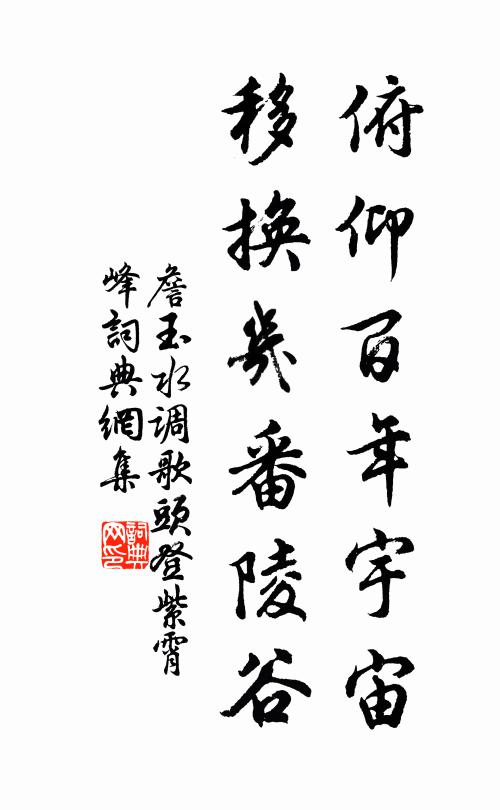 俯仰百年宇宙
移换几番陵谷
詹玉水调歌頭登紫霄
峰詞典網集
詞典
网印